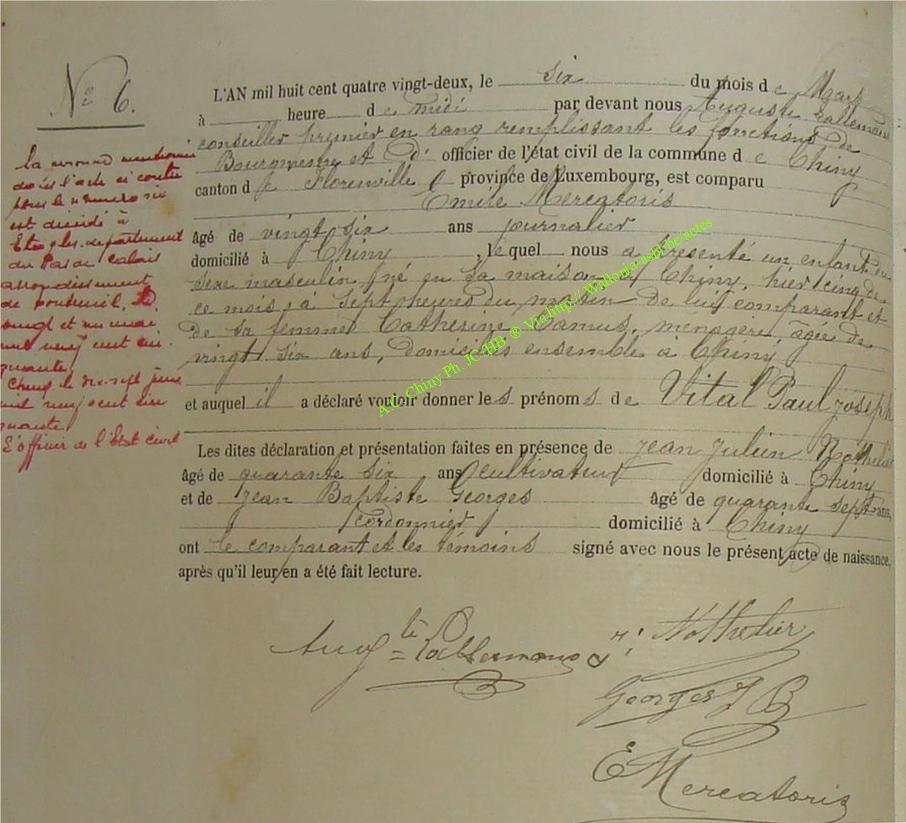 N° 6.
la personne mentionnée
dans l'acte ci contre
sous le numero six
est décédé à
Etaples, département
du Pas de Calais
arrondissement
de Montreuil, le
vingt et un mai
mil neuf cent cin
quante.
Chiny, le dix sept juin
mil neuf cent cin
quante.
L'officier de l'Etat civil
L'AN mil huit cent quatre vingt-deux, le six du mois de Mars
à heure de midi par devant nous Auguste Lallemand
conseiller premier en rang remplissant les fonctions de
Bourgmestre et d'officier de l'état civil de la commune de Chiny
canton de Florenville province de Luxembourg, est comparu
Emile Mercatoris
âgé de vingt six ans journalier
domicilié à Chiny, lequel nous a présenté un enfant du
sexe masculin, né en sa maison à Chiny, hier cinq de
ce mois, à sept heures du matin de lui comparant et
de sa femme Catherine Camus, ménagère, âgée de
vingt six ans, domiciliés ensemble à Chiny,
et auquel il a déclaré vouloir donner les prénoms de Vital Paul Joseph
Les dites déclaration et présentation faites en présence de Jean Julien Nothelier
âgé de quarante six ans cultivateur domicilié à Chiny
et de Jean Baptiste Georges âgé de quarante sept ans,
cordonnier domicilié à Chiny
ont le comparant et les témoins signé avec nous le présent acte de naissance,
après qu'il leur en a été fait lecture.
Augte Lallemand J. Nothelier
Georges J B
E Mercatoris